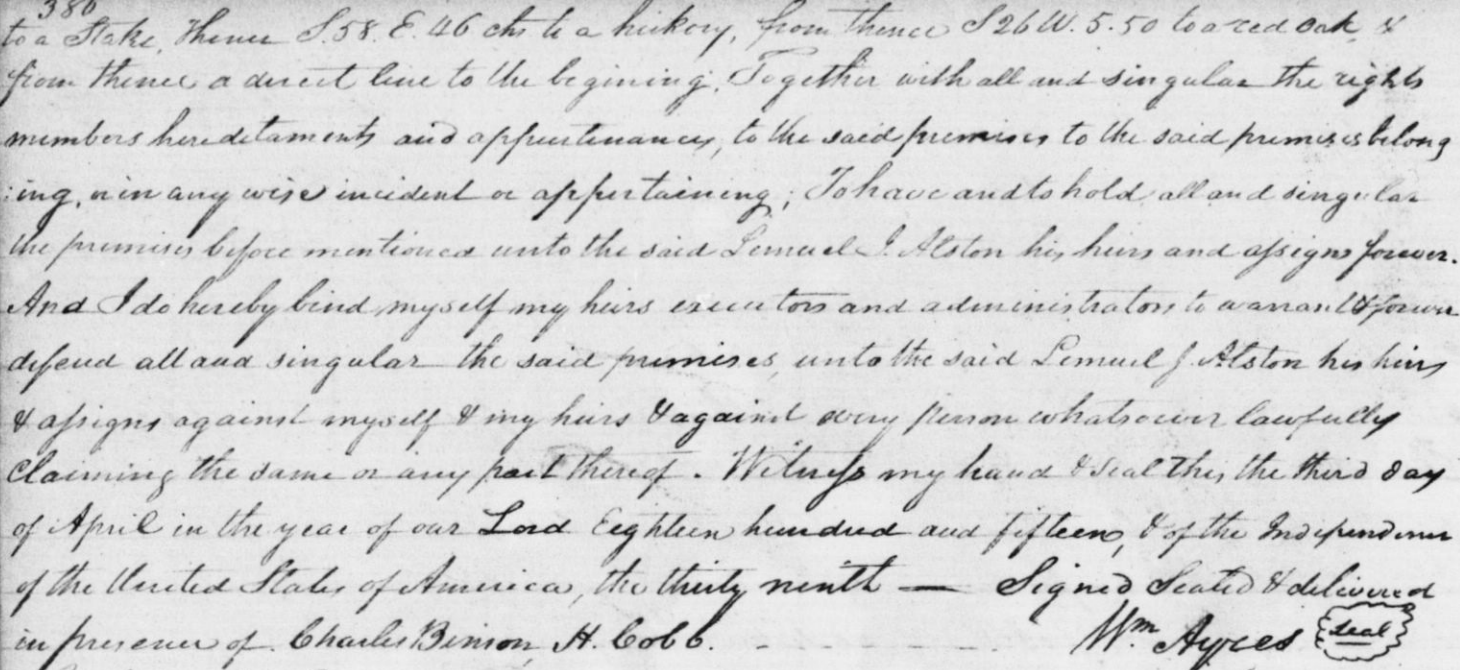 386
to a Stake, Thence S.58.E. 46 chs to a hickory, from thence S 26 W. 5.50 to a red oak &
from thence a direct line to the begining. Together with all and singular the rights
members hereditaments and appurtenances, to the said premises to the said premises belong
:ing, or in any wise incident or appertaining; To have and to hold all and singular
the premises before mentioned unto the said Lemuel J. Alston his heirs and assigns forever.
And I do hereby bind myself my heirs executors and administrators to warrant & forever
defend all and singular the said premises, unto the said Lemuel J. Alston his heirs
& assigns against myself & my heirs & against every person whatsoever lawfully
Claiming the same or any part thereof. Witness my hand & seal this the third day
of April in the year of our Lord Eighteen hundred and fifteen, & of the Independence
of the United States of America, the thirty ninth — Signed Sealed & delivered
in presence of. Charles Binson, H. Cobb. Wm Ayres Seal